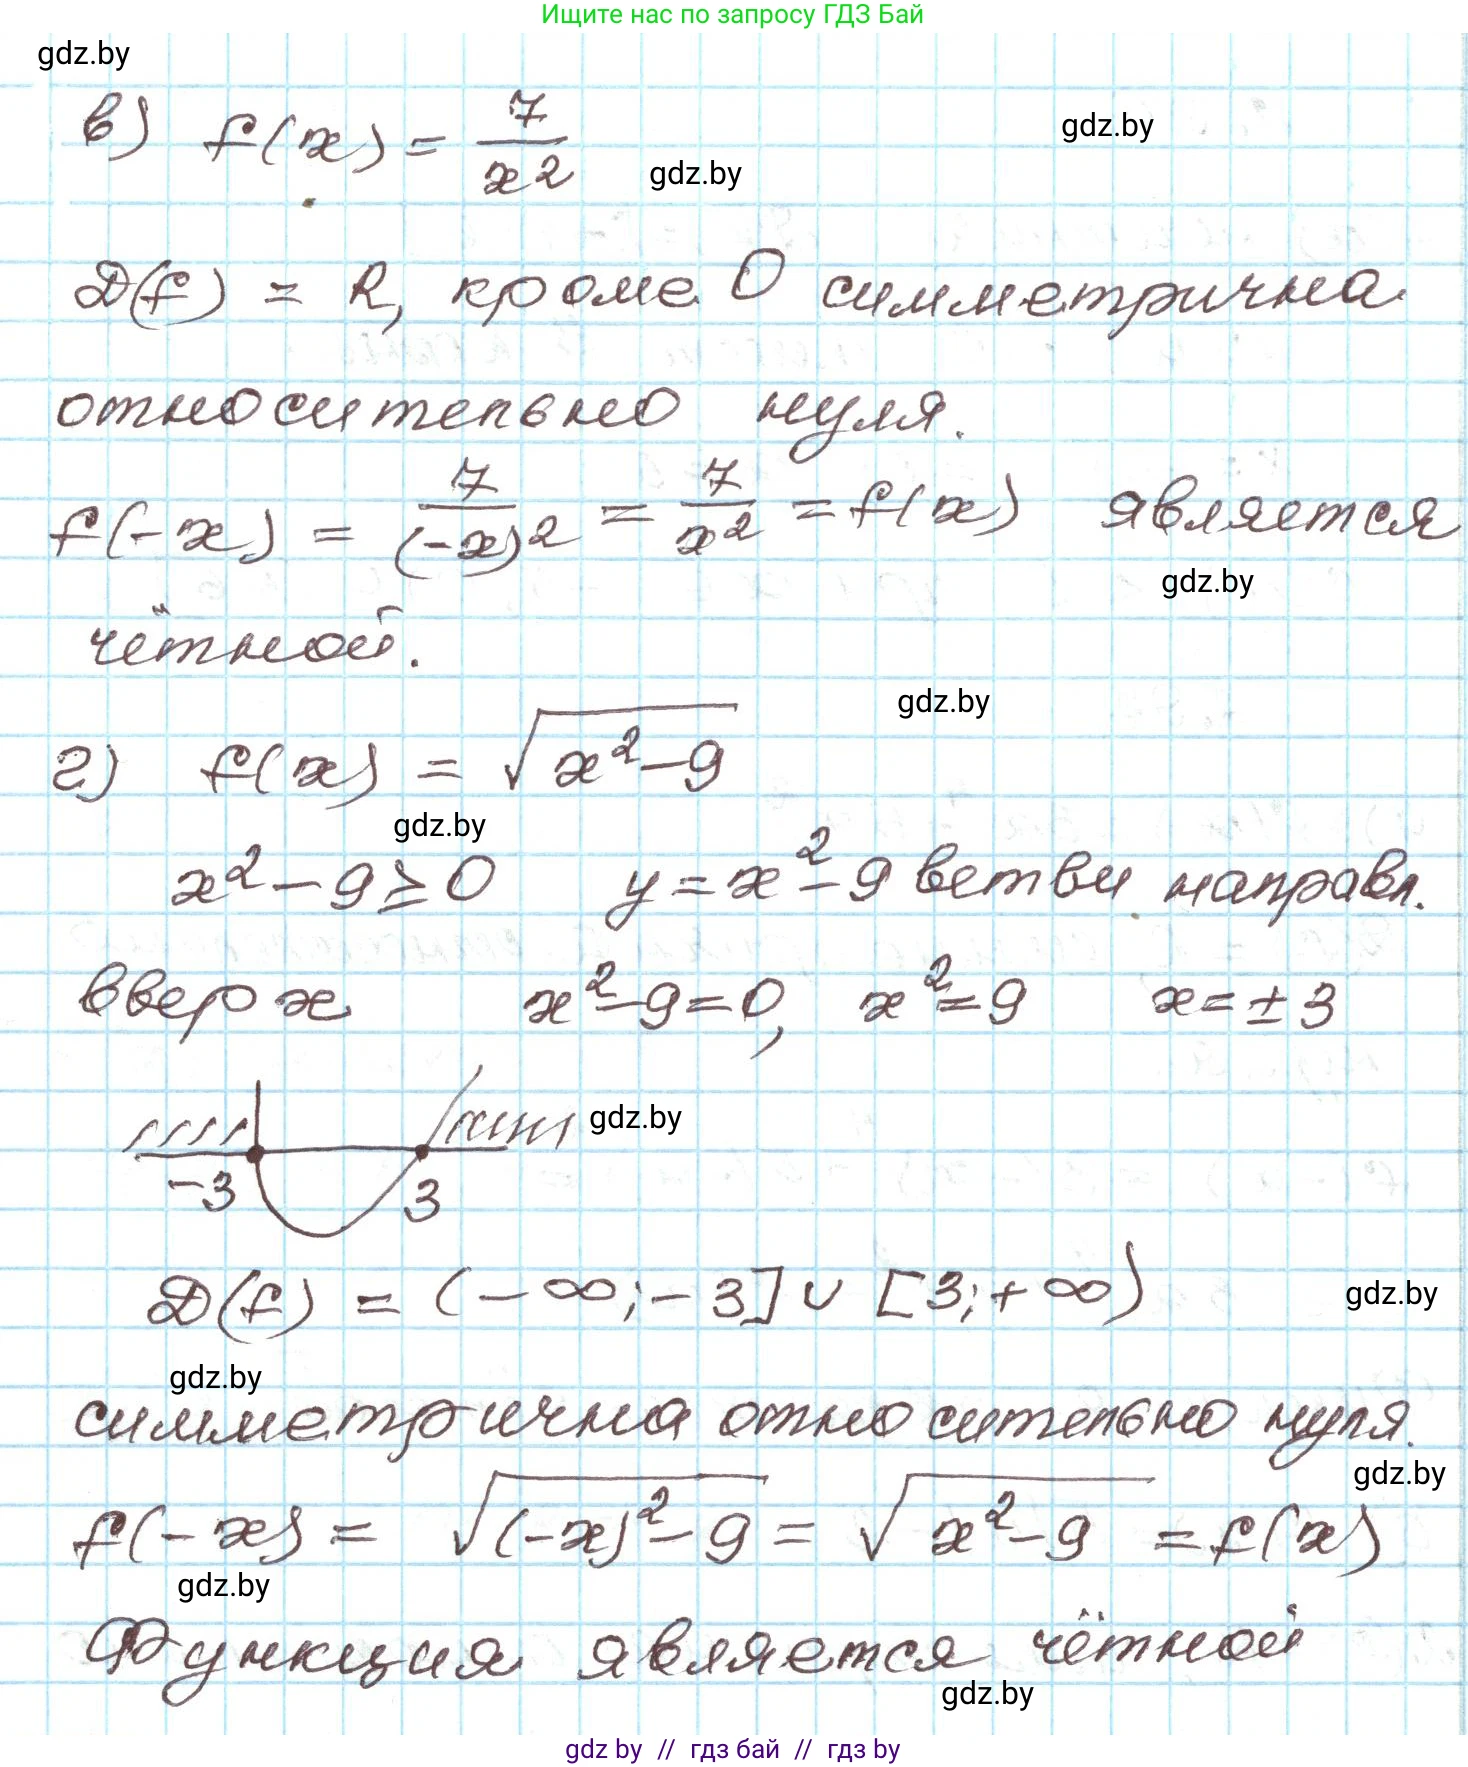 Ищите нас по запросу ГДЗ Бай
gdz.by
в) f(x) = 7/x²
gdz.by
gdz.by
D(f) = R, кроме 0 симметрична
относительно нуля.
f(-x) = 7/(-x)² = 7/x² = f(x) является
gdz.by
чётной.
gdz.by
г) f(x) = √(x²-9)
gdz.by
x²-9≥0 y=x²-9 ветви направл.
вверх x²-9=0, x²=9 x=±3
gdz.by
-3 3
D(f) = (-∞;-3]∪[3;+∞)
gdz.by
gdz.by
симметрична относительно нуля.
gdz.by
f(-x) = √((-x)²-9) = √(x²-9) = f(x)
gdz.by
Функция является чётной
gdz.by
gdz by // гдз бай // гдз by